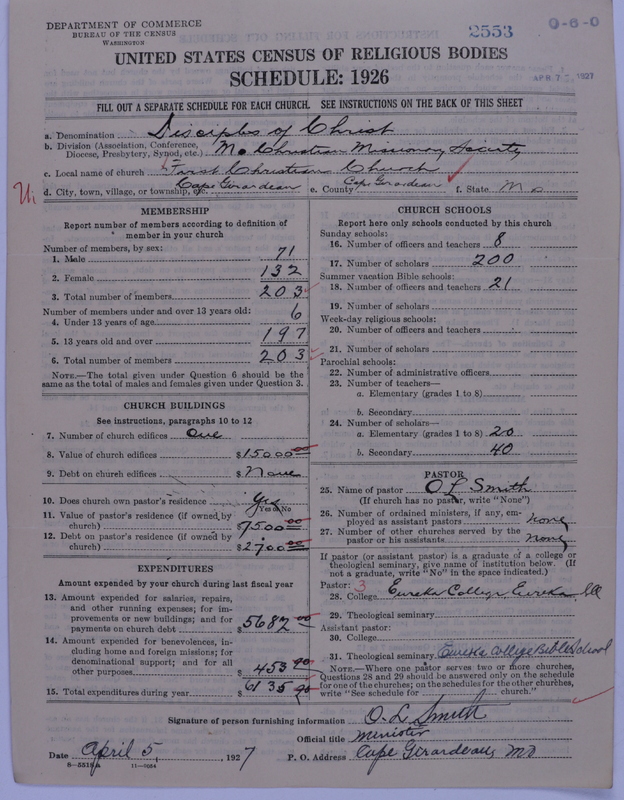 DEPARTMENT OF COMMERCE
BUREAU OF THE CENSUS
WASHINGTON
2553
0-6-0
UNITED STATES CENSUS OF RELIGIOUS BODIES
SCHEDULE: 1926
APR 7 1927
FILL OUT A SEPARATE SCHEDULE FOR EACH CHURCH. SEE INSTRUCTIONS ON THE BACK OF THIS SHEET
a. Denomination Disciples of Christ
b. Division (Association, Conference, Diocese, Presbytery, Synod, etc.) Mo Christian Missionary Society
c. Local name of church First Christian Church
d. City, town, village, or township, etc. Cape Girardeau e. County Cape Girardeau f. State Mo
MEMBERSHIP
Report number of members according to definition of member in your church
Number of members, by sex:
1. Male 71
2. Female 132
3. Total number of members 203
Number of members under and over 13 years old:
4. Under 13 years of age 6
5. 13 years old and over 197
6. Total number of members 203
NOTE.—The total given under Question 6 should be the same as the total of males and females given under Question 3.
CHURCH BUILDINGS
See instructions, paragraphs 10 to 12
7. Number of church edifices One
8. Value of church edifices $15000 00
9. Debt on church edifices $ None
10. Does church own pastor's residence Yes
Yes or No
11. Value of pastor's residence (if owned by church) $7500 00
12. Debt on pastor's residence (if owned by church) $2700 00
EXPENDITURES
Amount expended by your church during last fiscal year
13. Amount expended for salaries, repairs, and other running expenses; for improvements or new buildings; and for payments on church debt $5682
14. Amount expended for benevolences, including home and foreign missions; for denominational support; and for all other purposes $453
15. Total expenditures during year $6135
CHURCH SCHOOLS
Report here only schools conducted by this church
Sunday schools:
16. Number of officers and teachers 8
17. Number of scholars 200
Summer vacation Bible schools:
18. Number of officers and teachers 21
19. Number of scholars
Week-day religious schools:
20. Number of officers and teachers
21. Number of scholars
Parochial schools:
22. Number of administrative officers
23. Number of teachers—
a. Elementary (grades 1 to 8)
b. Secondary
24. Number of scholars—
a. Elementary (grades 1 to 8) 20
b. Secondary 40
PASTOR
25. Name of pastor O L Smith
(If church has no pastor, write "None")
26. Number of ordained ministers, if any, employed as assistant pastors none
27. Number of other churches served by the pastor or his assistants none
If pastor (or assistant pastor) is a graduate of a college or theological seminary, give name of institution below. (If not a graduate, write "No" in the space indicated.)
Pastor: 3
28. College Eureka College Eureka Ill
29. Theological seminary
Assistant pastor:
30. College
31. Theological seminary Eureka College Bible School
NOTE.—Where one pastor serves two or more churches, Questions 28 and 29 should be answered only on the schedule for one of the churches; on the schedules for the other churches, write "See schedule for church."
Signature of person furnishing information O. L Smith
Official title Minister
Date April 5, 1927 P. O. Address Cape Girardeau, Mo
8—5518a 11—9084